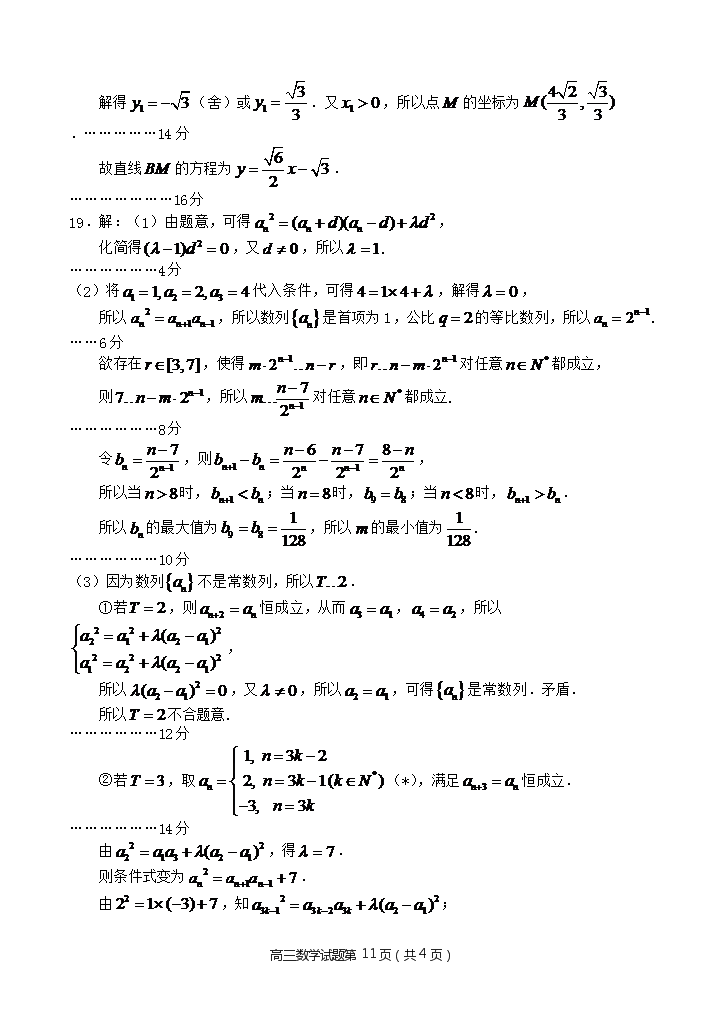 解得 y₁ = −√3（舍）或 y₁ = √3/3．又 x₁ > 0，所以点 M 的坐标为 M(4√2/3, √3/3)
．……………14 分
故直线 BM 的方程为 y = √6/2 x − √3．
…………………16分
19．解：（1）由题意，可得 aₙ² = (aₙ + d)(aₙ − d) + λd²，
化简得 (λ − 1)d² = 0，又 d ≠ 0，所以 λ = 1.
………………4分
（2）将 a₁ = 1, a₂ = 2, a₃ = 4 代入条件，可得 4 = 1×4 + λ，解得 λ = 0，
所以 aₙ² = aₙ₊₁aₙ₋₁，所以数列 {aₙ} 是首项为 1，公比 q = 2 的等比数列，所以 aₙ = 2ⁿ⁻¹.
……6分
欲存在 r ∈ [3, 7]，使得 m · 2ⁿ⁻¹ … n − r，即 r … n − m · 2ⁿ⁻¹ 对任意 n ∈ N* 都成立，
则 7 … n − m · 2ⁿ⁻¹，所以 m … (n − 7)/2ⁿ⁻¹ 对任意 n ∈ N* 都成立.
………………8分
令 bₙ = (n − 7)/2ⁿ⁻¹，则 bₙ₊₁ − bₙ = (n − 6)/2ⁿ − (n − 7)/2ⁿ⁻¹ = (8 − n)/2ⁿ，
所以当 n > 8 时，bₙ₊₁ < bₙ；当 n = 8 时，b₉ = b₈；当 n < 8 时，bₙ₊₁ > bₙ．
所以 bₙ 的最大值为 b₉ = b₈ = 1/128，所以 m 的最小值为 1/128．
………………10分
（3）因为数列 {aₙ} 不是常数列，所以 T … 2．
①若 T = 2，则 aₙ₊₂ = aₙ 恒成立，从而 a₃ = a₁，a₄ = a₂，所以
{ a₂² = a₁² + λ(a₂ − a₁)²
a₁² = a₂² + λ(a₂ − a₁)² ，
所以 λ(a₂ − a₁)² = 0，又 λ ≠ 0，所以 a₂ = a₁，可得 {aₙ} 是常数列．矛盾．
所以 T = 2 不合题意.
………………12分
②若 T = 3，取 aₙ = { 1, n = 3k − 2
2, n = 3k − 1 (k ∈ N*)
−3, n = 3k （*），满足 aₙ₊₃ = aₙ 恒成立．
………………14分
由 a₂² = a₁a₃ + λ(a₂ − a₁)²，得 λ = 7．
则条件式变为 aₙ² = aₙ₊₁aₙ₋₁ + 7．
由 2² = 1×(−3) + 7，知 a₃ₖ₋₁² = a₃ₖ₋₂a₃ₖ + λ(a₂ − a₁)²；
高三数学试题第 11页（共4页）